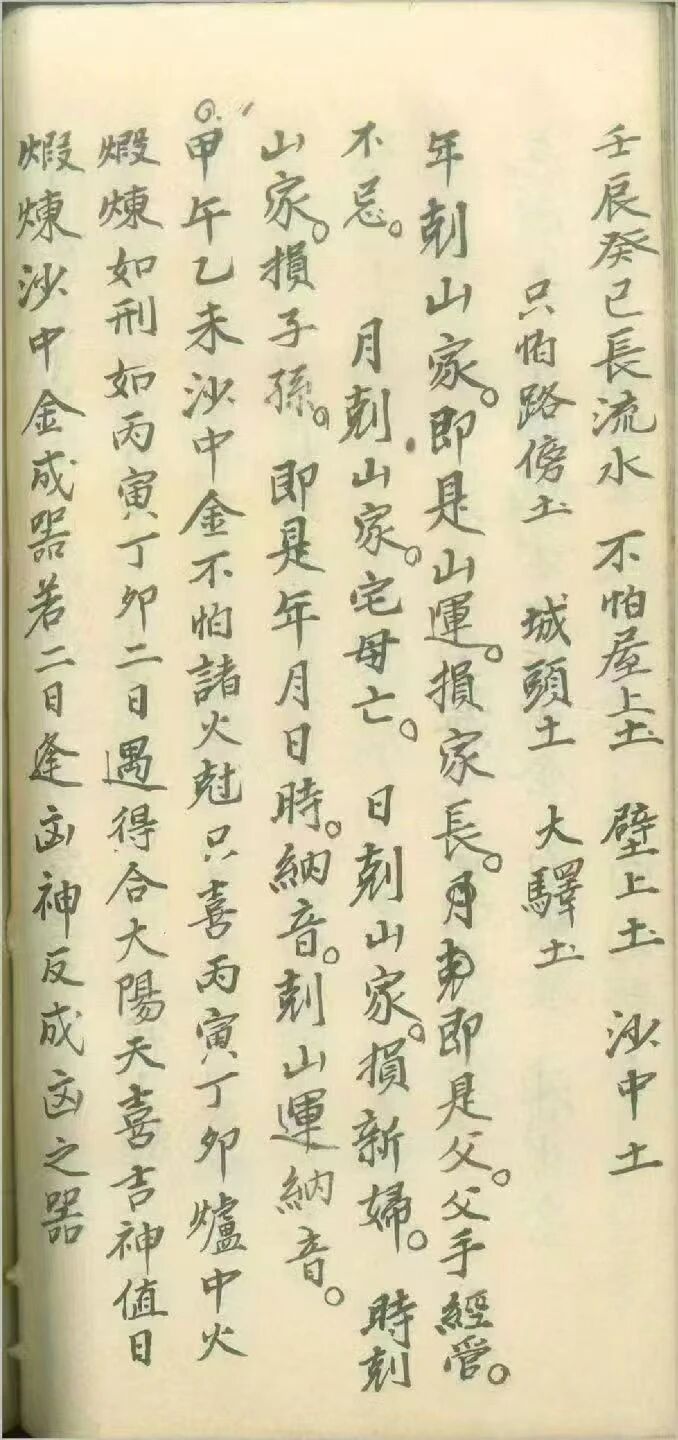 壬辰癸巳長流水 不怕屋上土 壁上土 沙中土
只怕路傍土 城頭土 大驛土
年剋山家。即是山運。損家長。即是父。父手經營。
不忌。 月剋山家。宅母亡。 日剋山家。損新婦。 時剋
山家。損子孫。 即是年月日時。納音。剋山運納音。
甲午乙未沙中金不怕諸火尅只喜丙寅丁卯爐中火
煆煉如刑如丙寅丁卯二日遇得合太陽天喜吉神值日
煆煉沙中金成器若二日逢凶神反成凶之器